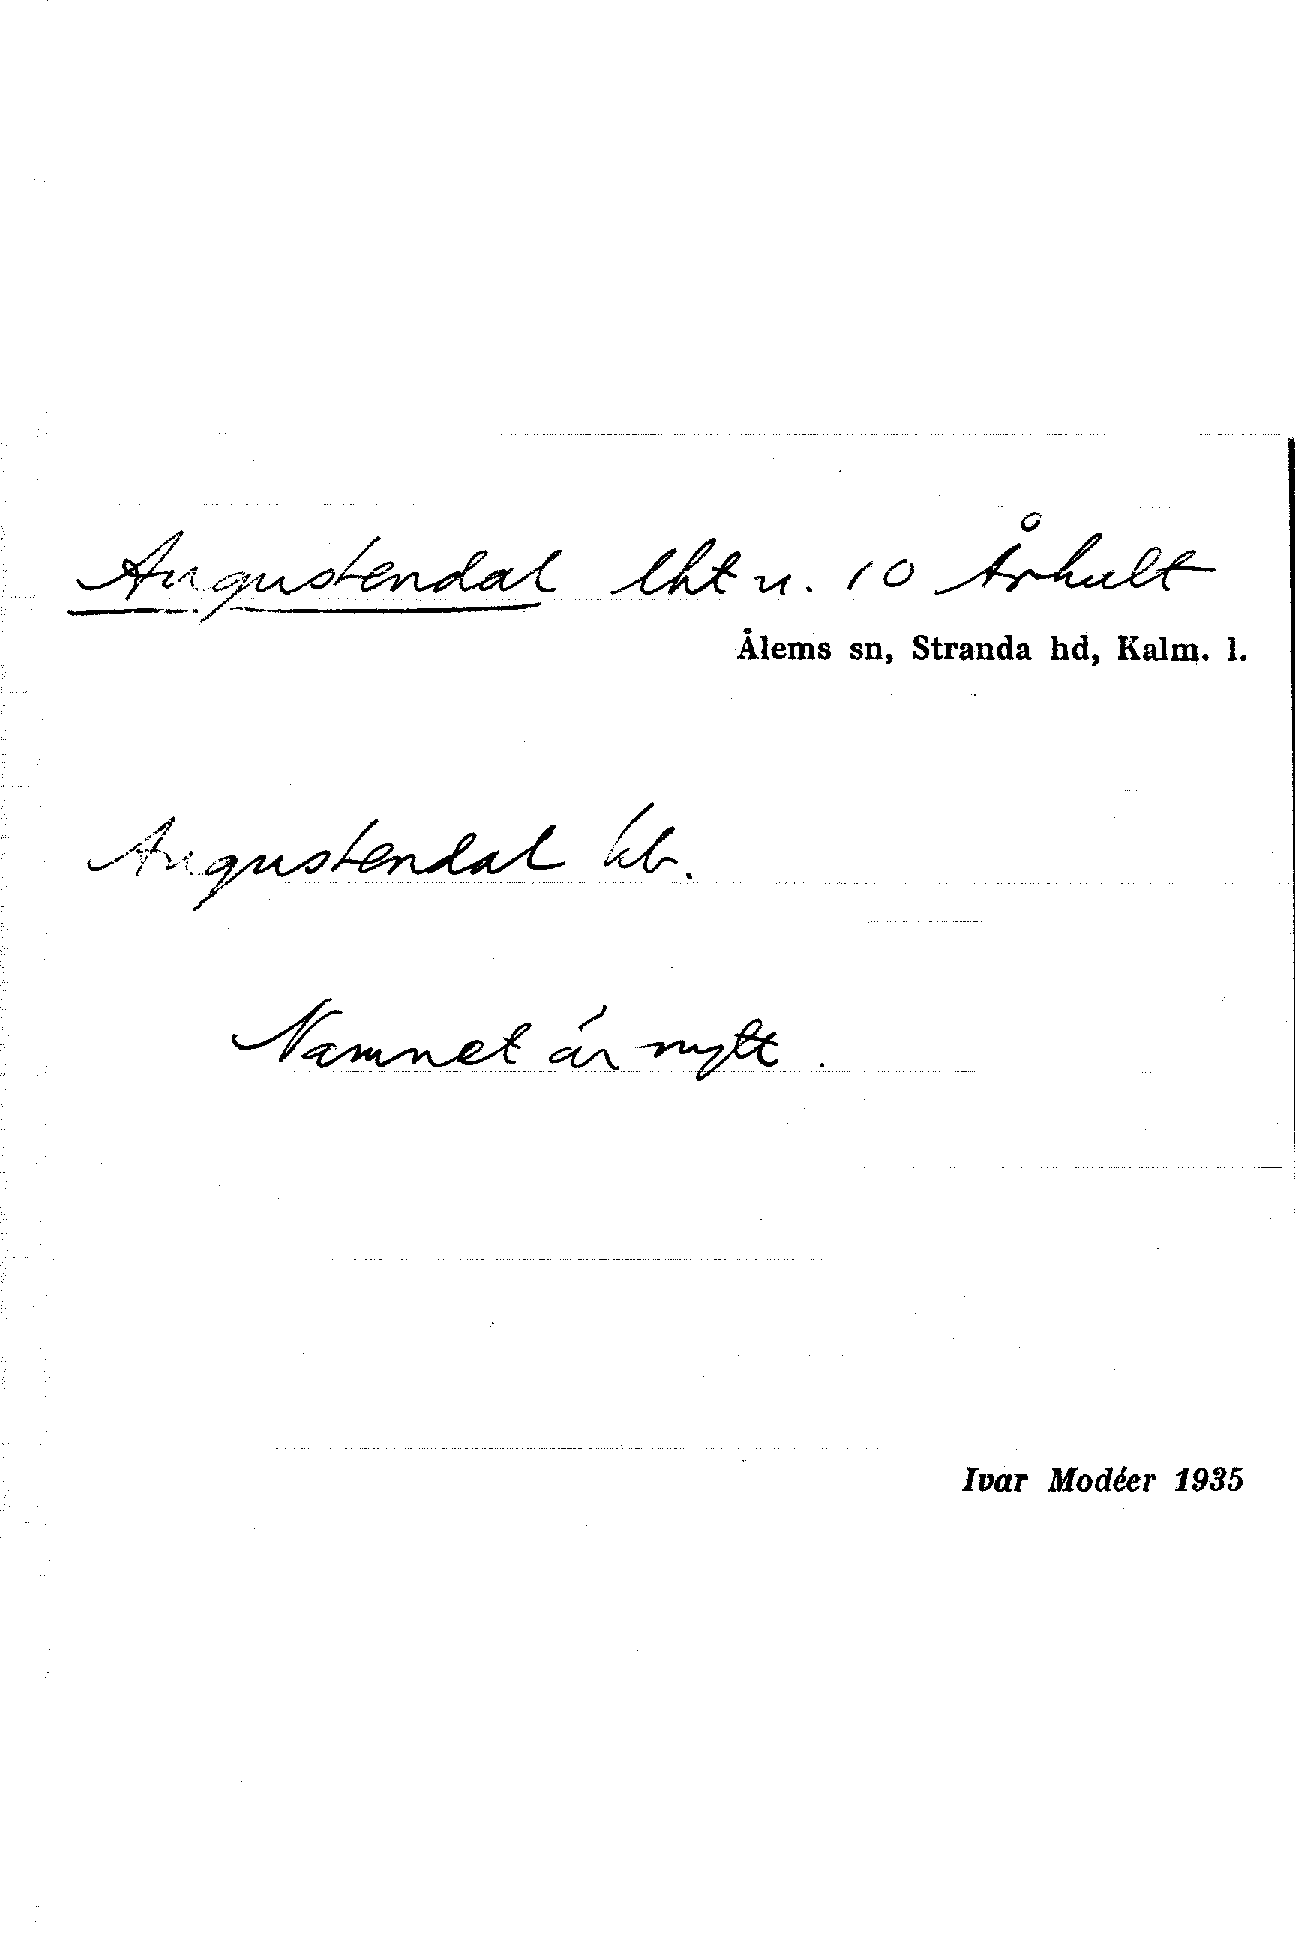 Augustendal lht u. 10 Århult
Ålems sn, Stranda hd, Kalm. l.
Augustendal kb.
Namnet är nytt.
Ivar Modéer 1935